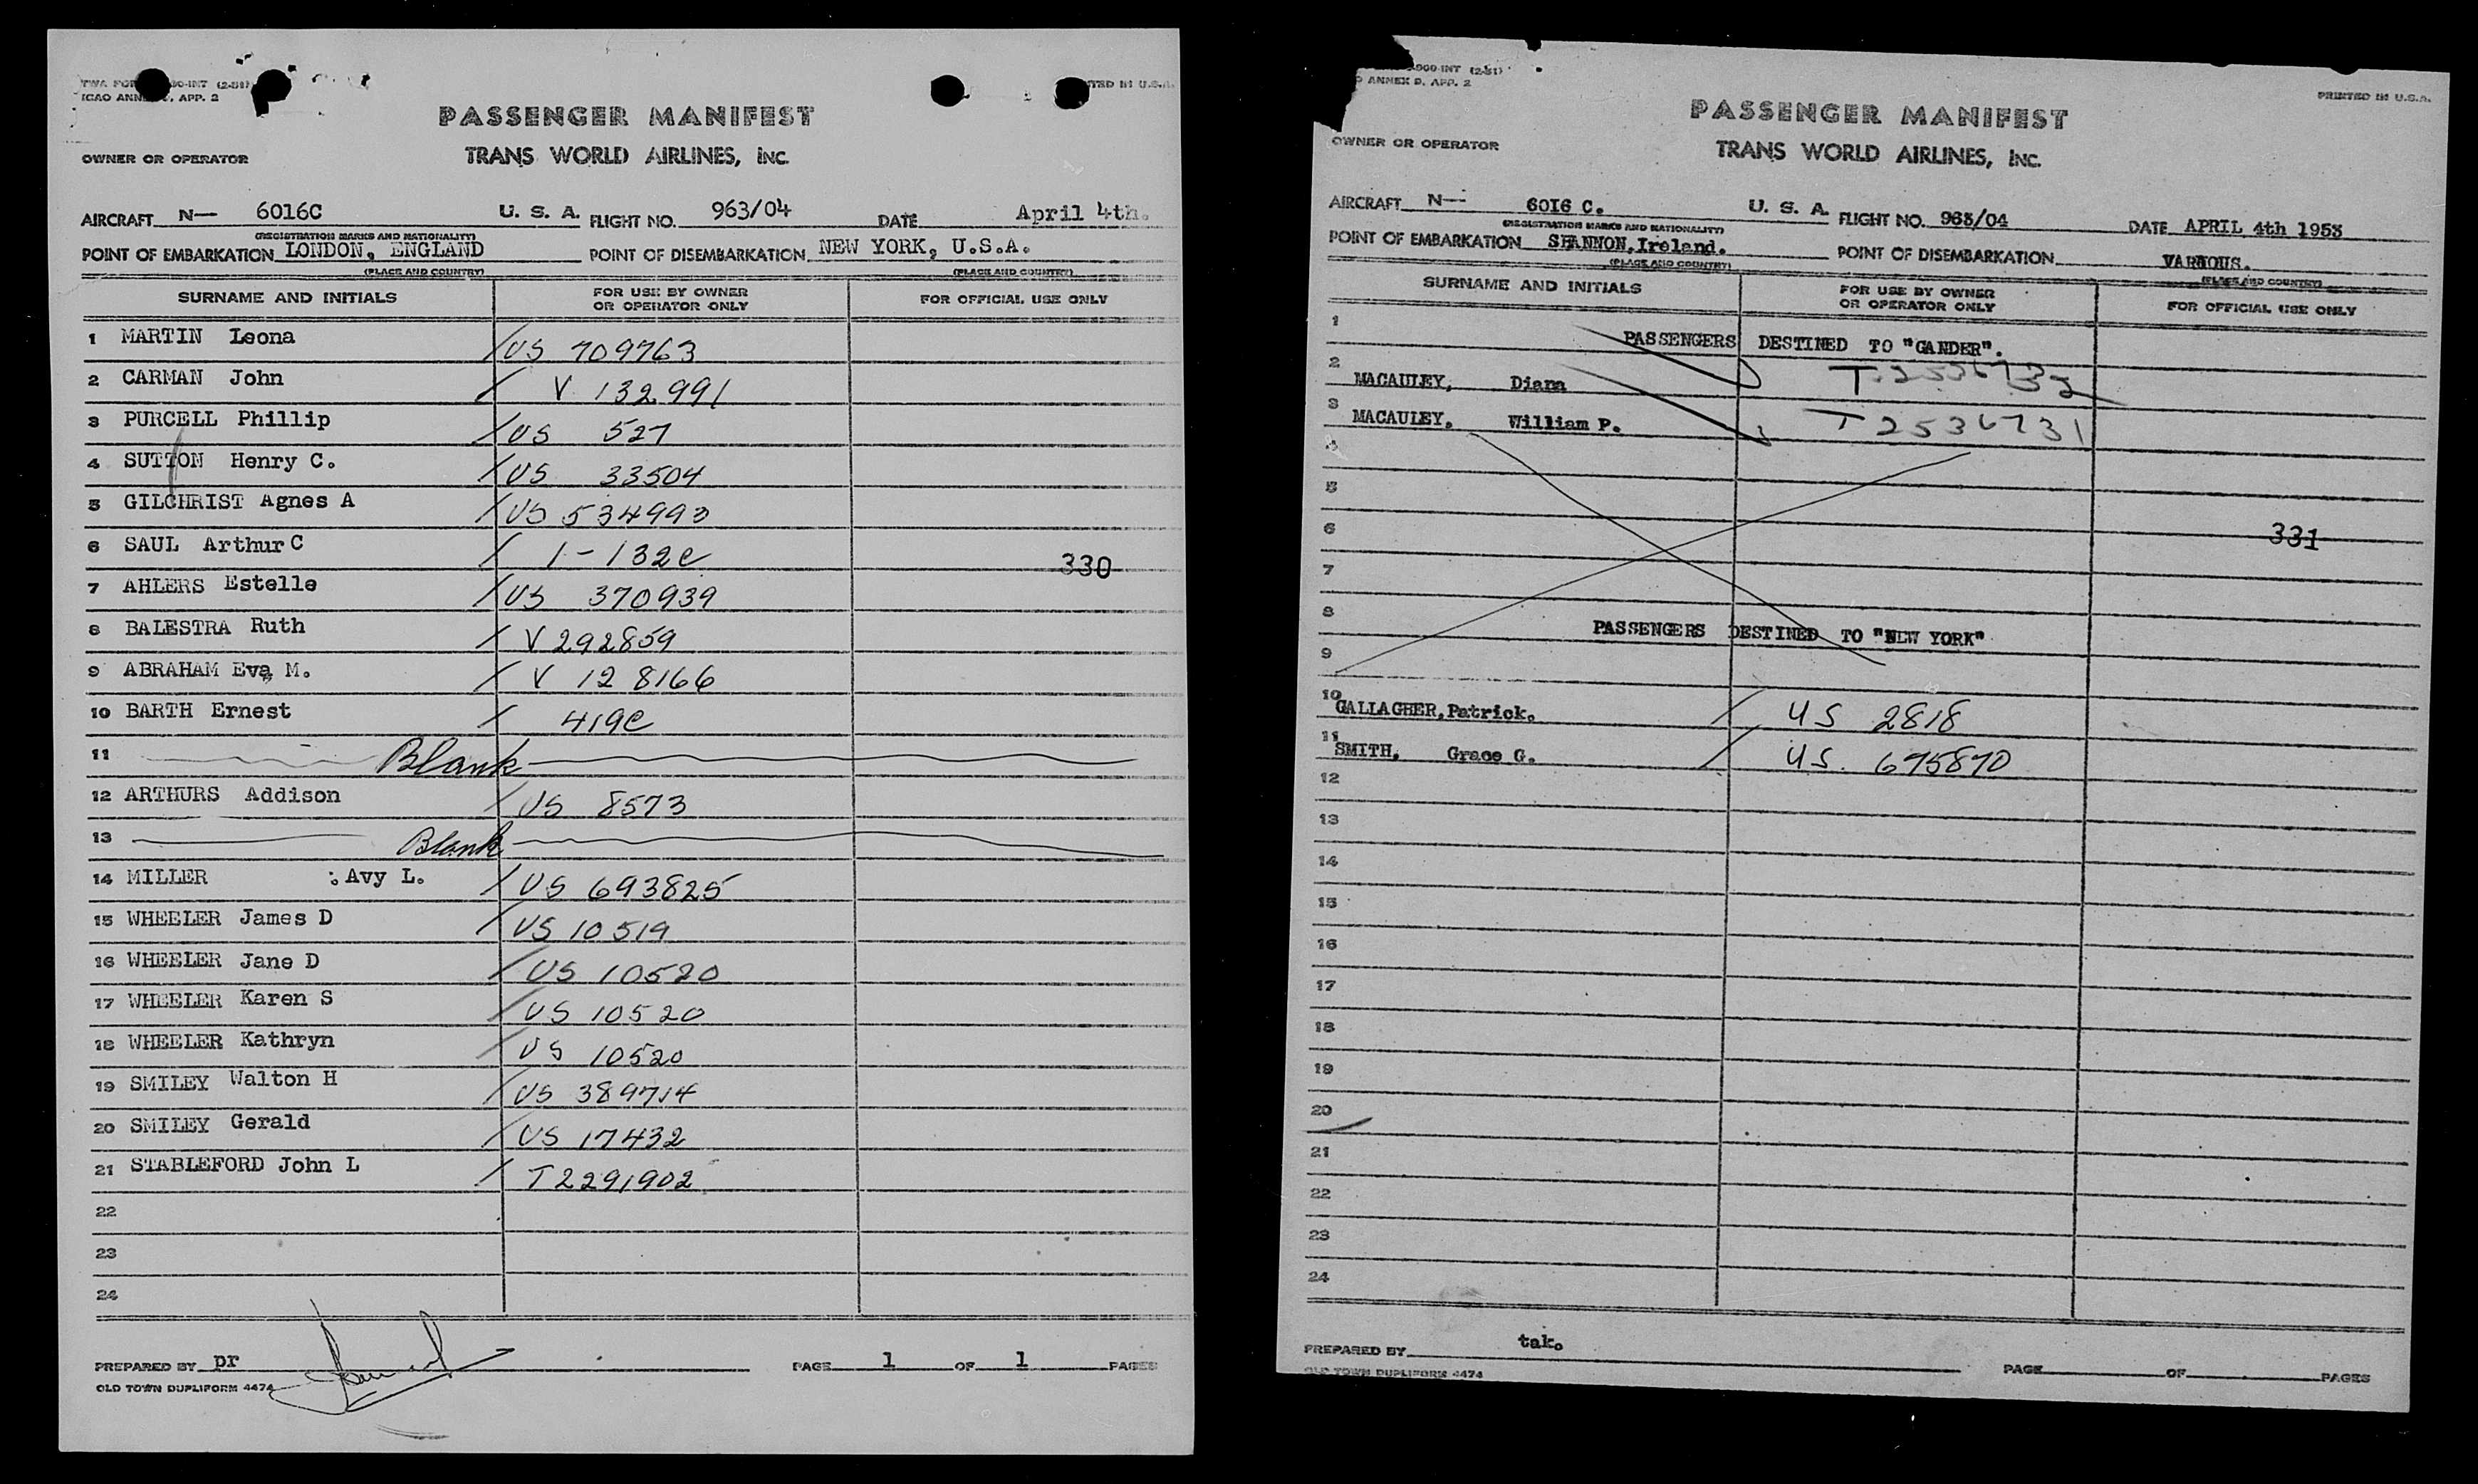 ICAO ANN , APP. 2
PASSENGER MANIFEST
OWNER OR OPERATOR
TRANS WORLD AIRLINES, INC.
AIRCRAFT N— 6016C U. S. A. FLIGHT NO. 963/04 DATE April 4th.
(REGISTRATION MARKS AND NATIONALITY)
POINT OF EMBARKATION LONDON, ENGLAND POINT OF DISEMBARKATION NEW YORK, U.S.A.
(PLACE AND COUNTRY) (PLACE AND COUNTRY)
SURNAME AND INITIALS FOR USE BY OWNER OR OPERATOR ONLY FOR OFFICIAL USE ONLY
1 MARTIN Leona / US 709763
2 CARMAN John / V 132991
3 PURCELL Phillip / US 527
4 SUTTON Henry C. / US 33504
5 GILCHRIST Agnes A / US 534993
6 SAUL Arthur C / 1-132c 330
7 AHLERS Estelle / US 370939
8 BALESTRA Ruth / V 292859
9 ABRAHAM Eva M. / V 128166
10 BARTH Ernest / 419c
11 Blank
12 ARTHURS Addison / US 8573
13 Blank
14 MILLER Avy L. / US 693825
15 WHEELER James D / US 10519
16 WHEELER Jane D / US 10520
17 WHEELER Karen S / US 10520
18 WHEELER Kathryn / US 10520
19 SMILEY Walton H / US 389714
20 SMILEY Gerald / US 17432
21 STABLEFORD John L / T2291902
22
23
24
PREPARED BY pr PAGE 1 OF 1 PAGES
OLD TOWN DUPLIFORM 4474
900-INT (2-51)
ANNEX 9, APP. 2
PRINTED IN U.S.A.
PASSENGER MANIFEST
OWNER OR OPERATOR
TRANS WORLD AIRLINES, INC.
AIRCRAFT N— 6016 C. U. S. A. FLIGHT NO. 963/04 DATE APRIL 4th 1953
(REGISTRATION MARKS AND NATIONALITY)
POINT OF EMBARKATION SHANNON, Ireland. POINT OF DISEMBARKATION VARIOUS.
(PLACE AND COUNTRY) (PLACE AND COUNTRY)
SURNAME AND INITIALS FOR USE BY OWNER OR OPERATOR ONLY FOR OFFICIAL USE ONLY
1 PASSENGERS DESTINED TO "GANDER".
2 MACAULEY, Diana
3 MACAULEY, William P. T2536731
4
5
6 331
7
8 PASSENGERS DESTINED TO "NEW YORK"
9
10 GALLAGHER, Patrick. / US 2818
11 SMITH, Grace G. / US. 675870
12
13
14
15
16
17
18
19
20
21
22
23
24
PREPARED BY tak. PAGE OF PAGES
OLD TOWN DUPLIFORM 4474